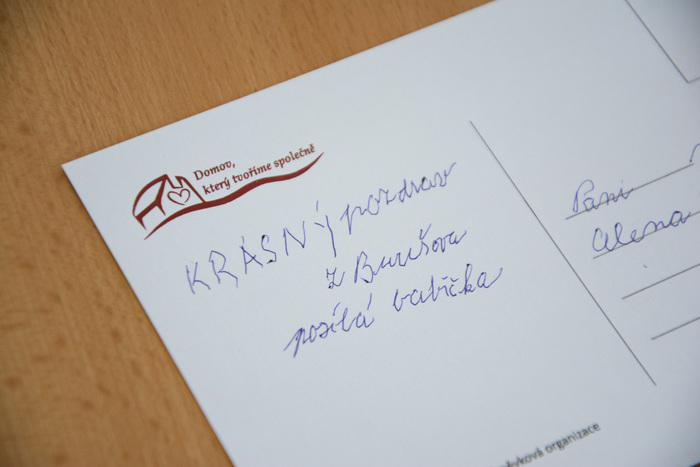 Domov,
který tvoříme společně
KRÁSNÝ pozdrav
z Burešova
posílá babička
Paní
Alena
organizace